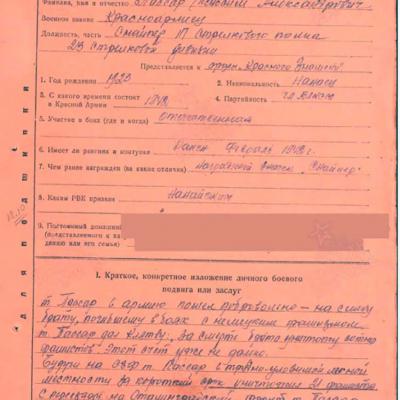 Фамилия, имя и отчество Пассар Александрович
Военное звание Красноармеец
Должность, часть Снайпер 117 Стрелкового полка
23 Стрелковой дивизии
Представляется к орден "Красного Знамени"
1. Год рождения 1923
2. Национальность Нанаец
3. С какого времени состоит
в Красной Армии 1942
4. Партийность чл. ВЛКСМ
5. Участие в боях (где и когда) Отечественная
6. Имеет ли ранения и контузии Ранен Февраль 1943 г.
7. Чем ранее награжден (за какие отличия) Снайпер
8. Каким РВК призван Нанайским
9. Постоянный домашний
(представляемого к на
дению или его семьи)
I. Краткое, конкретное изложение личного боевого
подвига или заслуг
т. Пассар в армию пошел добровольно — на смену
брату, погибшему в боях с немецким фашизмом.
т. Пассар дал клятву, за смерть брата уничтожу сотню
фашистов. Этот счет уже не далек.
Будучи на СЗФ т. Пассар в лесной
местности за короткий срок уничтожил 21 фашиста
на Сталинградский фронт т. Пассар
Для подшивки